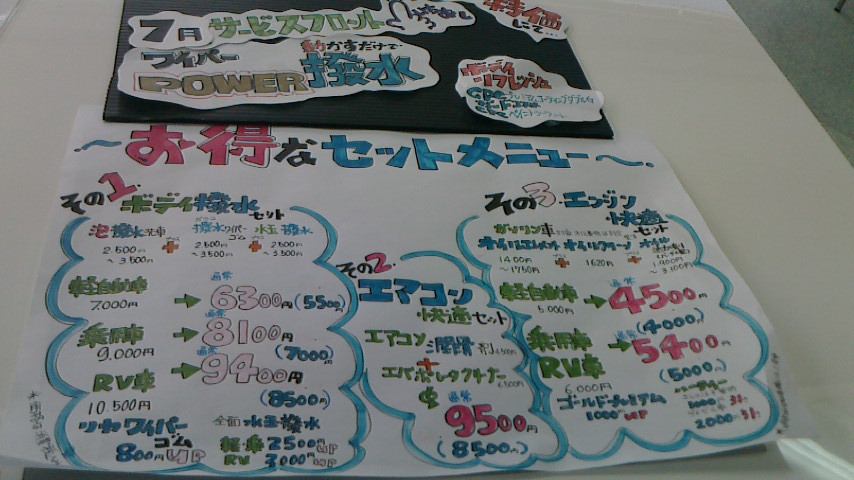 7月 サービスフロント
特価
にて…
ワイパー 動かすだけで
POWER撥水
ボディ
リフレッシュ
～お得なセットメニュー～
その1. ボディ撥水
セット
泡撥水洗車 + 撥水ワイパーゴム + 水玉撥水
2.500円～3.500円 2.500円～3.500円 2.500円～3.500円
軽自動車
7.000円 → 通常 6300円 (5500円)
乗用車
9.000円 → 通常 8100円 (7000円)
RV車
10.500円 → 通常 9400円 (8500円)
リヤワイパー
ゴム
800円UP
全面水玉撥水
軽・乗 2500円UP
RV 3000円UP
その2.
エアコン
快適セット
エアコン
+
エバポレタクリーナー
で
通常
9500円
(8500円)
その3. エンジン
快適
セット
ガソリン車
オイルエレメント + オイルクリーン + オイル
1400円～1750円 1620円 1.900円～3.100円
軽自動車
5.000円 → 通常 4500円
(4000円)
乗用車
RV車 → 通常 5400円
6.000円 (5000円)
ゴールドプレミアム
1000円UP